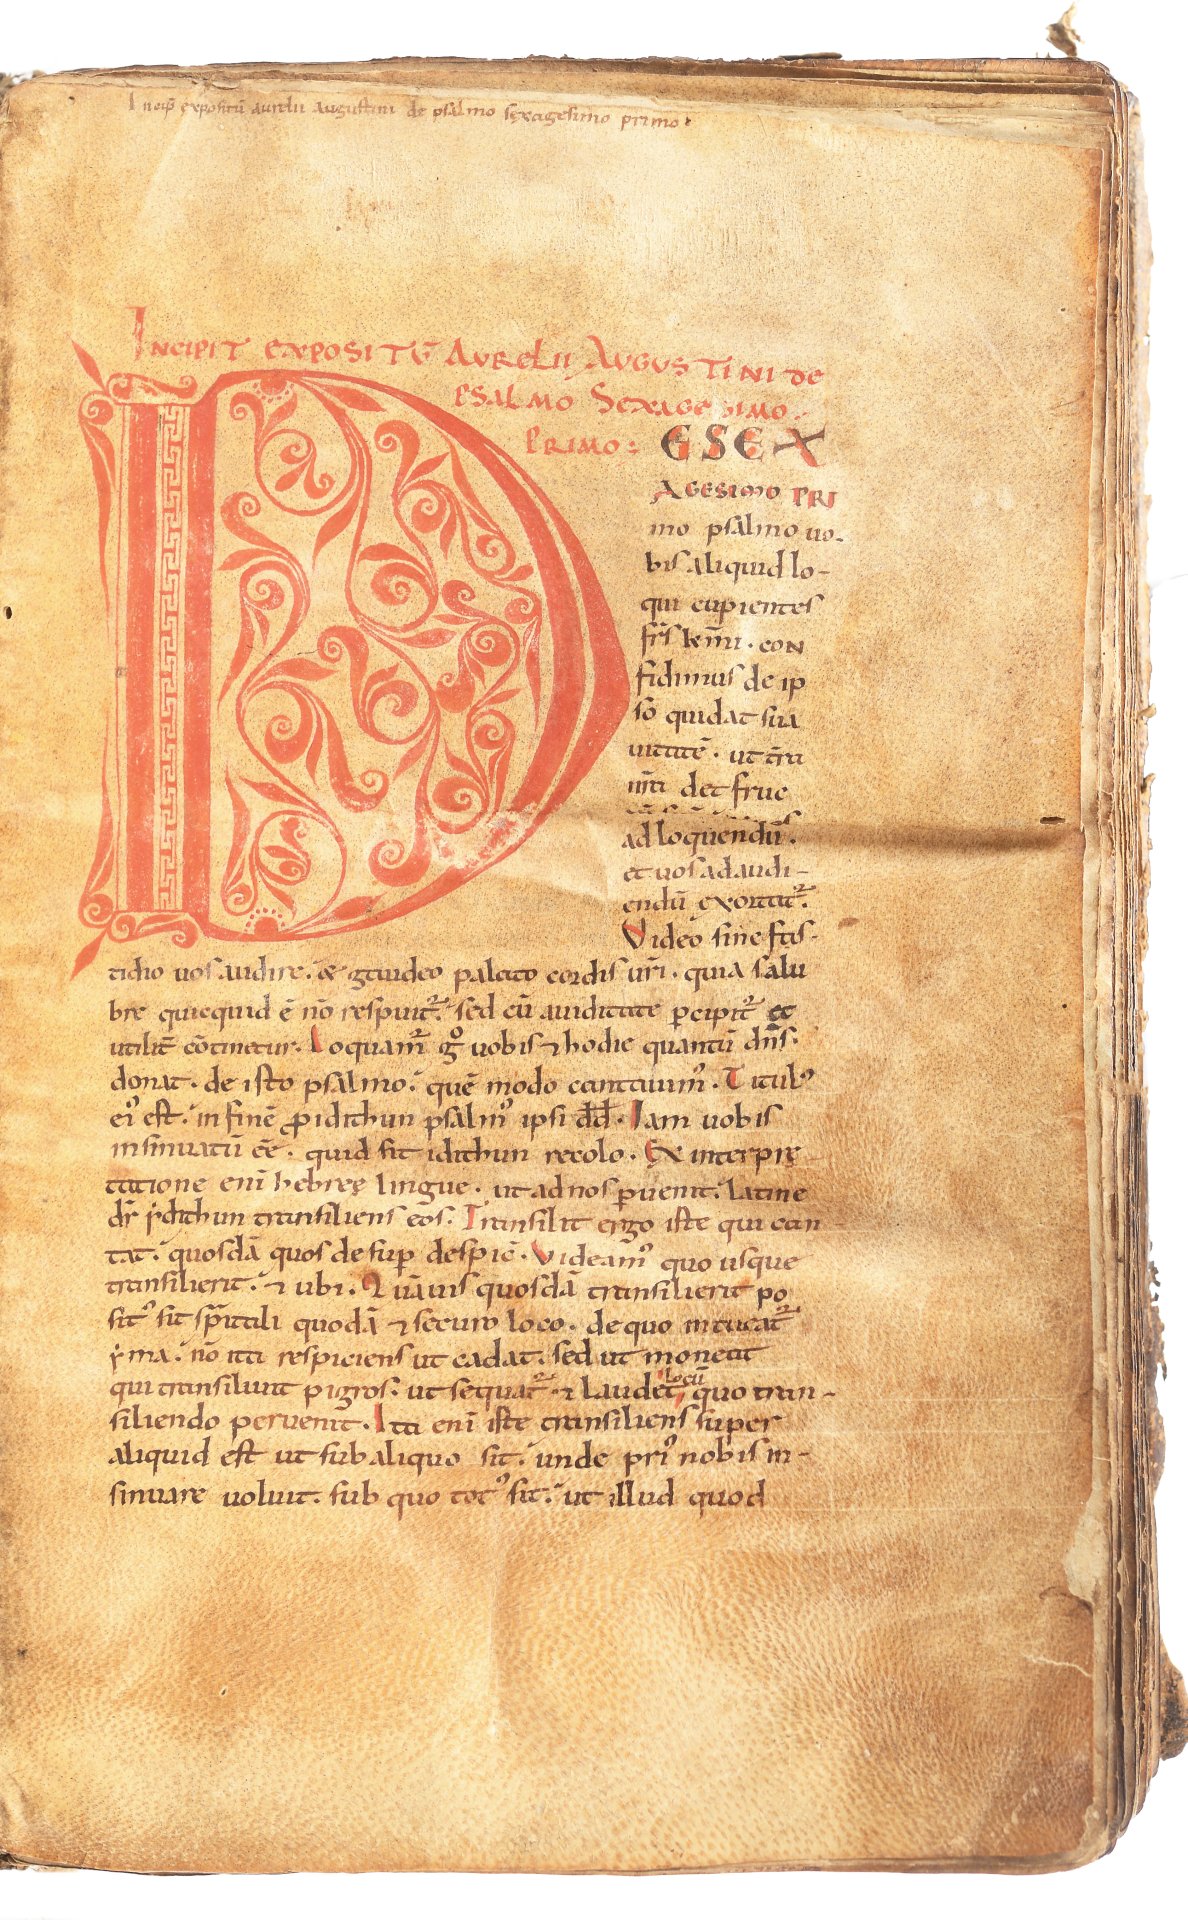 Incip̄ expositū aurelii augustini de psalmo sexagesimo primo.
INCIPIT EXPOSITŪ AURELII AUGUSTINI DE
PSALMO SEXAGESIMO
PRIMO:
D E SEX
AGESIMO PRI
mo psalmo uo-
bis aliquid lo-
qui cupientes
frīs km̄i. con
fidimus de ip
sō quidat sua
uitatē. ut tr̄ra
nr̄a det fruc
ad loquendū.
et uos adaudi-
endū exortat᷑.
Video sine fas-
tidio uos audire. & gaudeo palato cordis ur̄i. quia salu
bre quicquid ē nō respuit᷑. sed cū auiditate ꝑcipit᷑ et
utilit̄ cōtinetur. Loquam᷑ gͦ uobis ⁊ hodie quantū dn̄s.
donat. de isto psalmo. quē modo cantauimꝰ. Titulꝰ
eiꝰ est. in finē ꝓ idithun psalmꝰ ipsi dd̄. Iam uobis
insinuatū eē. quid sit idithun recolo. Ex interprę
tatione eni᷑ hebreę lingue. ut ad nos ꝑuenit. Latine
dr̄ ydithun transiliens eōs. Transilit ergo iste qui can
tat. quosdā quos desuꝑ despic̄. Videamꝰ quo usque
transilierit. ⁊ ubi. Quāuis quosdā transilierit po
sitꝰ sit spīritali quodā ⁊ securo loco. de quo intueat᷑
yma. nō ita respiciens ut cadat. sed ut moneat
qui transiliunt pigros. ut sequat᷑. ⁊ laudet locū quo tran-
siliendo peruenit. Ita eni᷑ iste transiliens super
aliquid est ut sub aliquo sit. unde priꝰ nobis in-
sinuare uoluit. sub quo totꝰ sit. ut illud quod